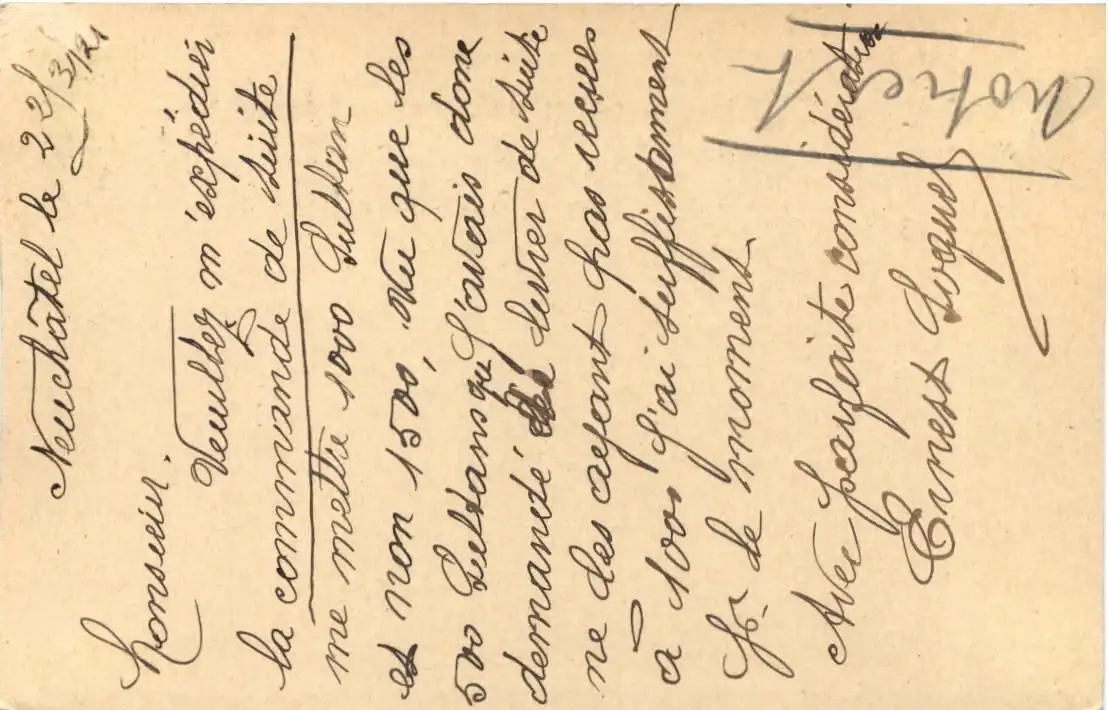 Neuchâtel le 22/3/21
Monsieur.
Veuillez m'éxpédier
la commande de suite
me mettre 1000 Sultan
et non 1500, Vu que les
500 Sultans que j'avais donc
demandé dernier de suite
ne les ayant pas reçues
à 1001 j'ai suffisament
pr. le moment
Avec parfaite considération
Ernest
notiert